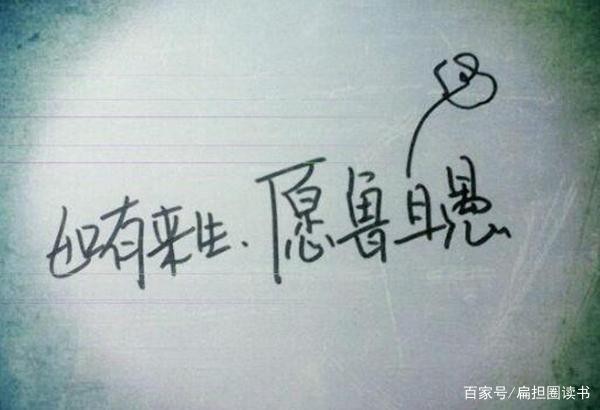 如有来生、愿鲁且愚
百家号/扁担圈读书